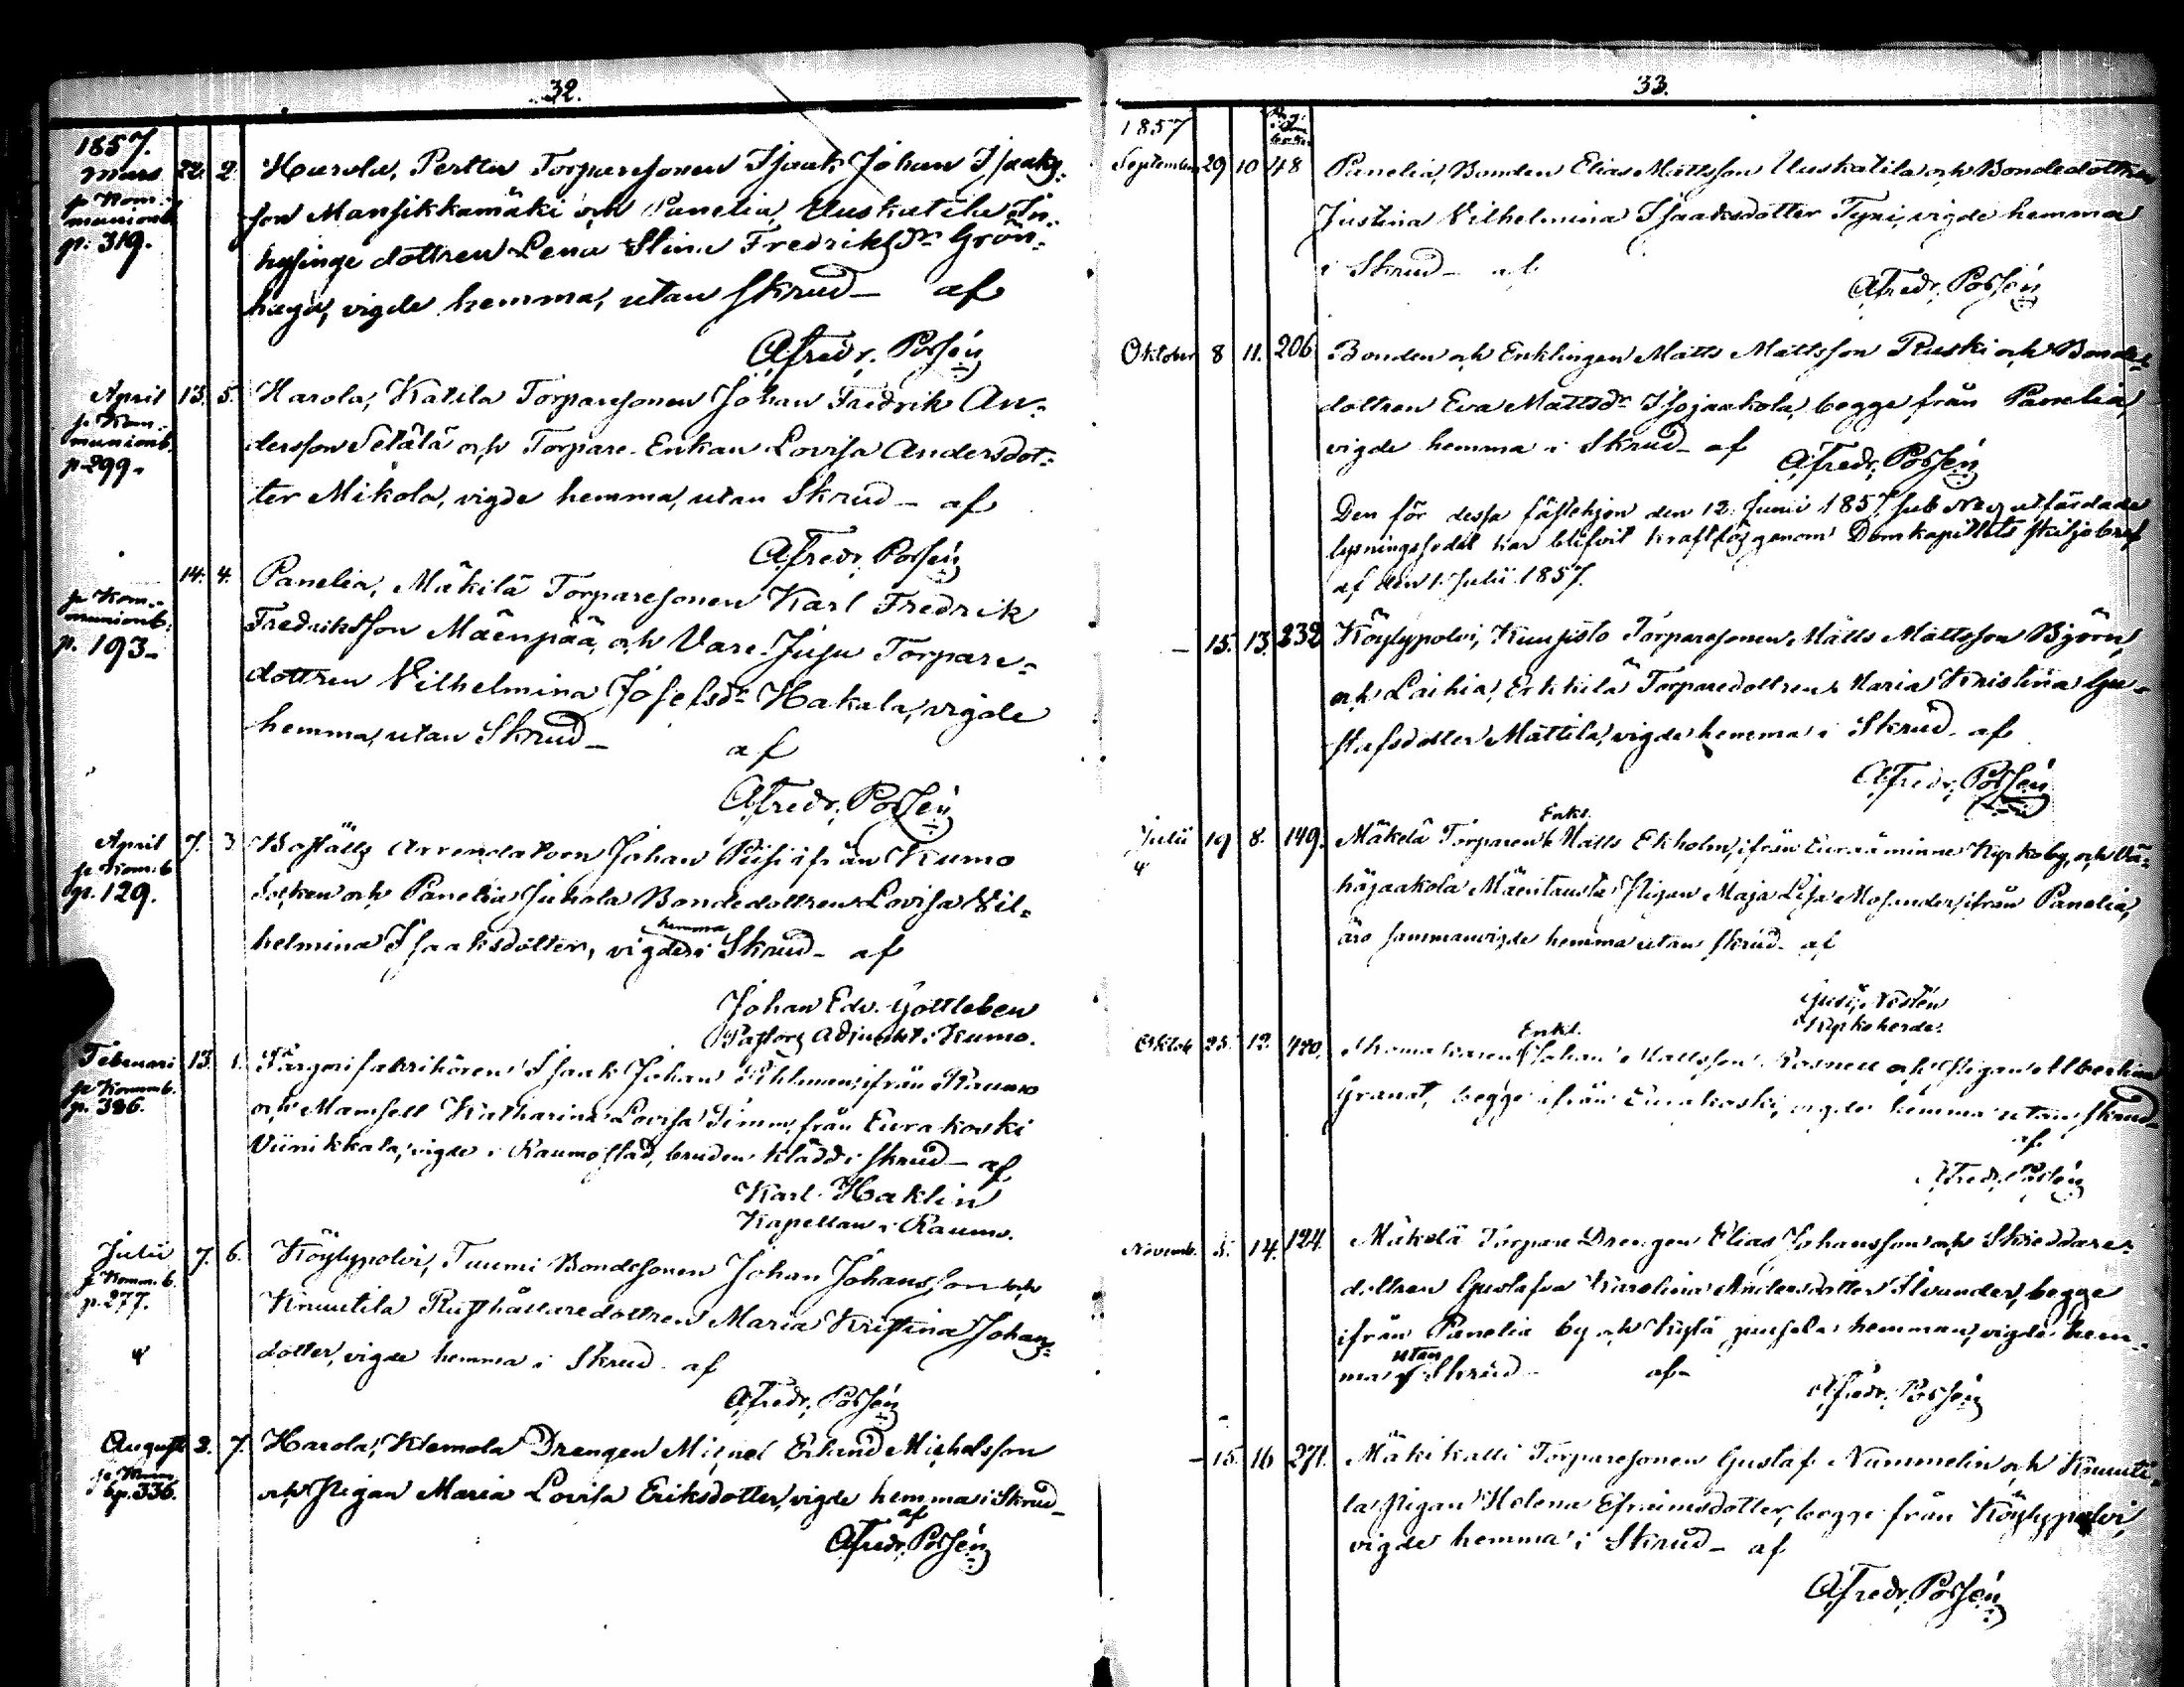 32.
1857.
Mars 22. 2. Harola, Perttu Torparesonen Isaak Johan Isaaks-
p Kom-
munionb.
p. 319.
son Mansikkamäki och Panelia, Uuskatila In-
hysinge dottren Lena Stina Fredriksdr Grön-
haga, vigde hemma, utan skrud_ af
AFredr. Possén
April 13. 5. Harola, Katila Torparesonen Johan Fredrik An-
p Kom-
munionb.
p 299.
dersson Setälä och Torpare Enkan Lovisa Andersdot-
ter Mikola, vigde hemma, utan Skrud_ af
AFredr. Possén
14. 4. Panelia, Mäkilä Torparesonen Karl Fredrik
p Kom-
munionb.
p. 193_
Fredriksson Mäenpää, och Vare Juju Torpare-
dottren Vilhelmina Josefsdr Hakala, vigde
hemma, utan Skrud_ af
AFredr. Possén
April 7. 3 Boställs Arrendatorn Johan Piisi ifrån Kumo
p Kom. b
p. 129.
Socken och Panelia Juhola Bondedottren Lovisa Vil-
helmina Isaaksdotter, vigde hemma i Skrud_ af
Johan Edv. Gottleben
Pastors Adjunkt i Kumo.
Februari 13. 1. Färgerifabrikören Isaak Johan ifrån Raumo
p Komm b.
p. 386.
och Mamsell Katharina Lovisa Timm, från Eurakoski
Viinikkala, vigde i Raumo stad, bruden klädd i skrud_ af
Karl Haklin
Kapellan i Raumo.
Julii 7. 6. Köylypolvi, Tuumi Bondesonen Johan Johansson och
p Komm. b.
p. 277.
Knuutila Rusthållaredottren Maria Kristina Johans-
dotter, vigde hemma i Skrud af
AFredr. Possén
Augusti 2. 7. Harola, Klemola Drengen Michel Erland Michelsson
p. 336.
och Pigan Maria Lovisa Eriksdotter, vigde hemma i Skrud_
af
AFredr. Possén
33.
1857
September 29 10 48 Panelia, Bonden Elias Mattsson Uuskatila och Bondedottren
Justina Vilhelmina Isaaksdotter Tyni, vigde hemma
i Skrud_ af
AFredr. Possén
Oktober 8 11. 206 Bonden och Enklingen Matts Mattsson Ruski och Bonde-
dottren Eva Mattsdr Isojaakola, begge från Panelia,
vigde hemma i Skrud_ af
AFredr. Possén
Den för dessa fästehjon den 12. Junii 1857 sub No utfärdade
lysningssedel har blifvit kraftlös genom Domkapitlets skiljobref
af den 1. Julii 1857.
_ 15. 13. 232 Köylypolvi, Kuusisto Torparesonen Matts Mattsson Björn,
och Laihia, Erkkilä Torparedottren Maria Kristina Gu-
stafsdotter Mattila, vigde hemma i Skrud_ af
AFredr. Possén
Julii 19 8. 149. Mäkelä Torparen Enkl. Matts Ekholm, ifrån Euraåminne Kyrkoby, och Vä-
häjaakola Mäentausta Pigan Maja Lisa Mosander, ifrån Panelia,
äro sammanvigde hemma utan skrud_ af
Nostén
Kyrkoherde.
Oktob. 25. 12. 420. Skomakaren Enkl. Johan Mattsson Rosnell och Pigan Albertina
Granat, begge ifrån Eurakoski, vigde hemma utan skrud_
af
AFredr. Possén
Novemb. 5. 14. 124. Mäkelä Torpare Drengen Elias Johansson och Skreddare-
dottren Gustafva Karolina Andersdotter Silvander, begge
ifrån Panelia by och Kylä hemman, vigde hem-
ma utan Skrud_ af_
AFredr. Possén
_ 15. 16 271. Mäkikalli Torparesonen Gustaf Nummelin och Knuuti-
la Pigan Helena Efraimsdotter, begge från Köylypolvi,
vigde hemma i Skrud_ af
AFredr. Possén